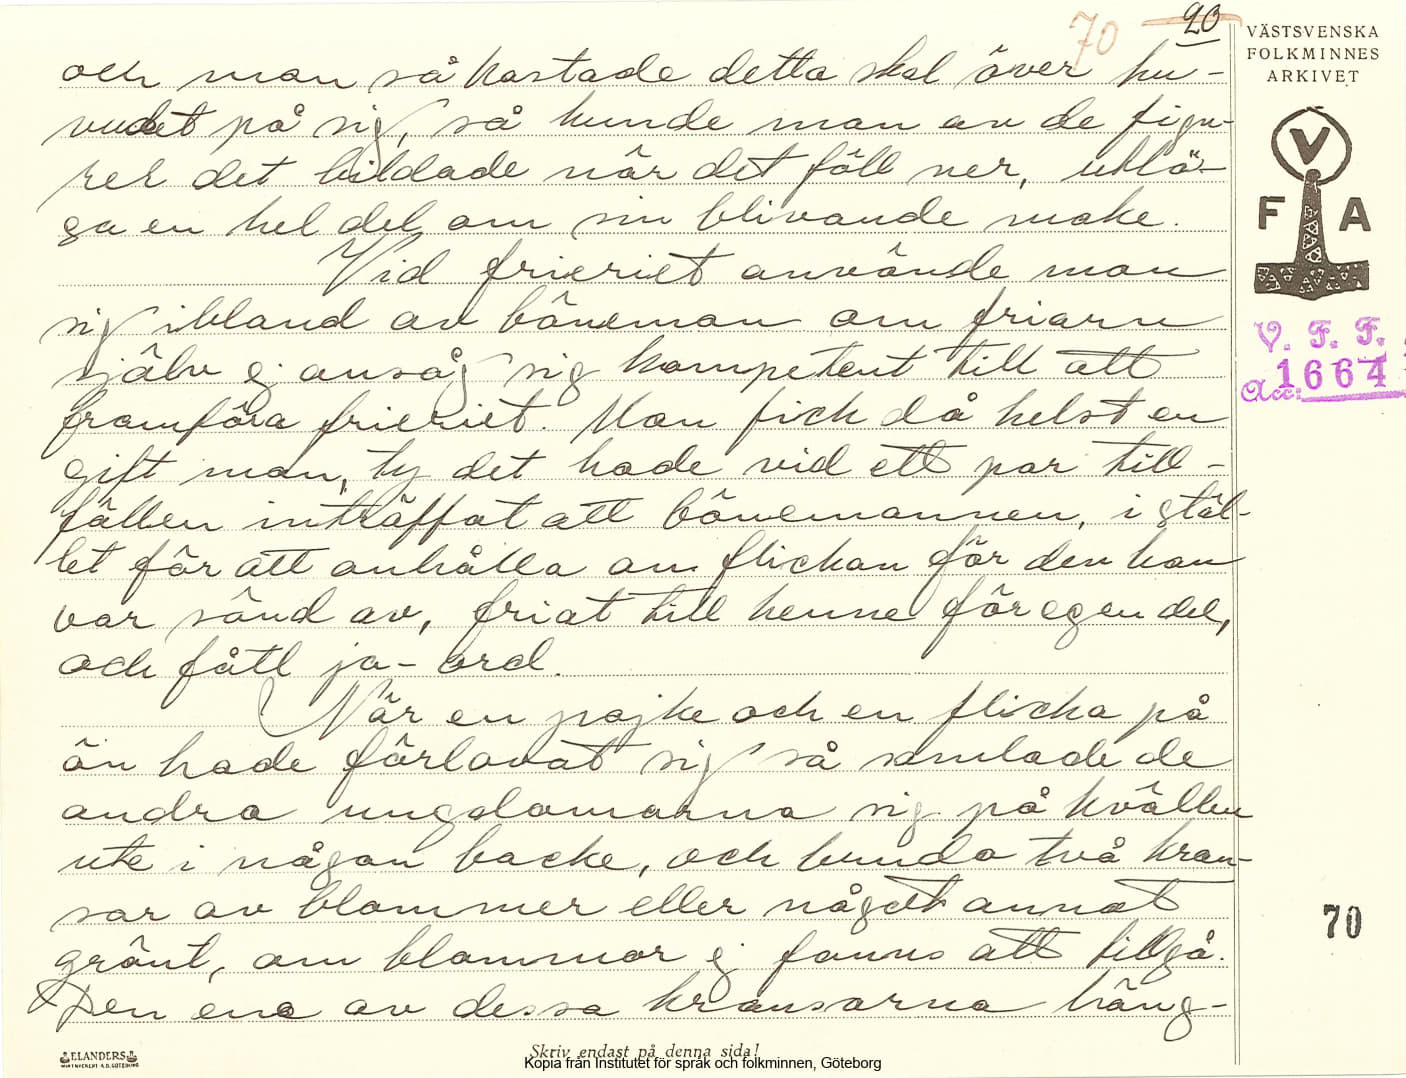 70 20
VÄSTSVENSKA
FOLKMINNES
ARKIVET
och man så kastade detta skal över hu-
vudet på sig, så kunde man av de figu-
rer det bildade när det föll ner, utlä-
sa en hel del om sin blivande make.
Vid frieriet använde man
sig ibland av böneman om friarn
själv ej ansåg sig kompetent till att
framföra frieriet. Man fick då helst en
gift man, ty det hade vid ett par till-
fällen inträffat att bönemannen, i stäl-
let för att anhålla om flickan för den han
var sänd av, friat till henne för egen del,
och fått ja-ord.
När en pojke och en flicka på
ön hade förlovat sig så samlade de
andra ungdomarna sig på kvällen
ute i någon backe, och bundo två kran-
sar av blommor eller något annat
grönt, om blommor ej fanns att tillgå.
Den ena av dessa kransarna häng-
V
F A
V. F. F.
Acc: 1664
70
ELANDERS
Skriv endast på denna sida!
Kopia från Institutet för språk och folkminnen, Göteborg